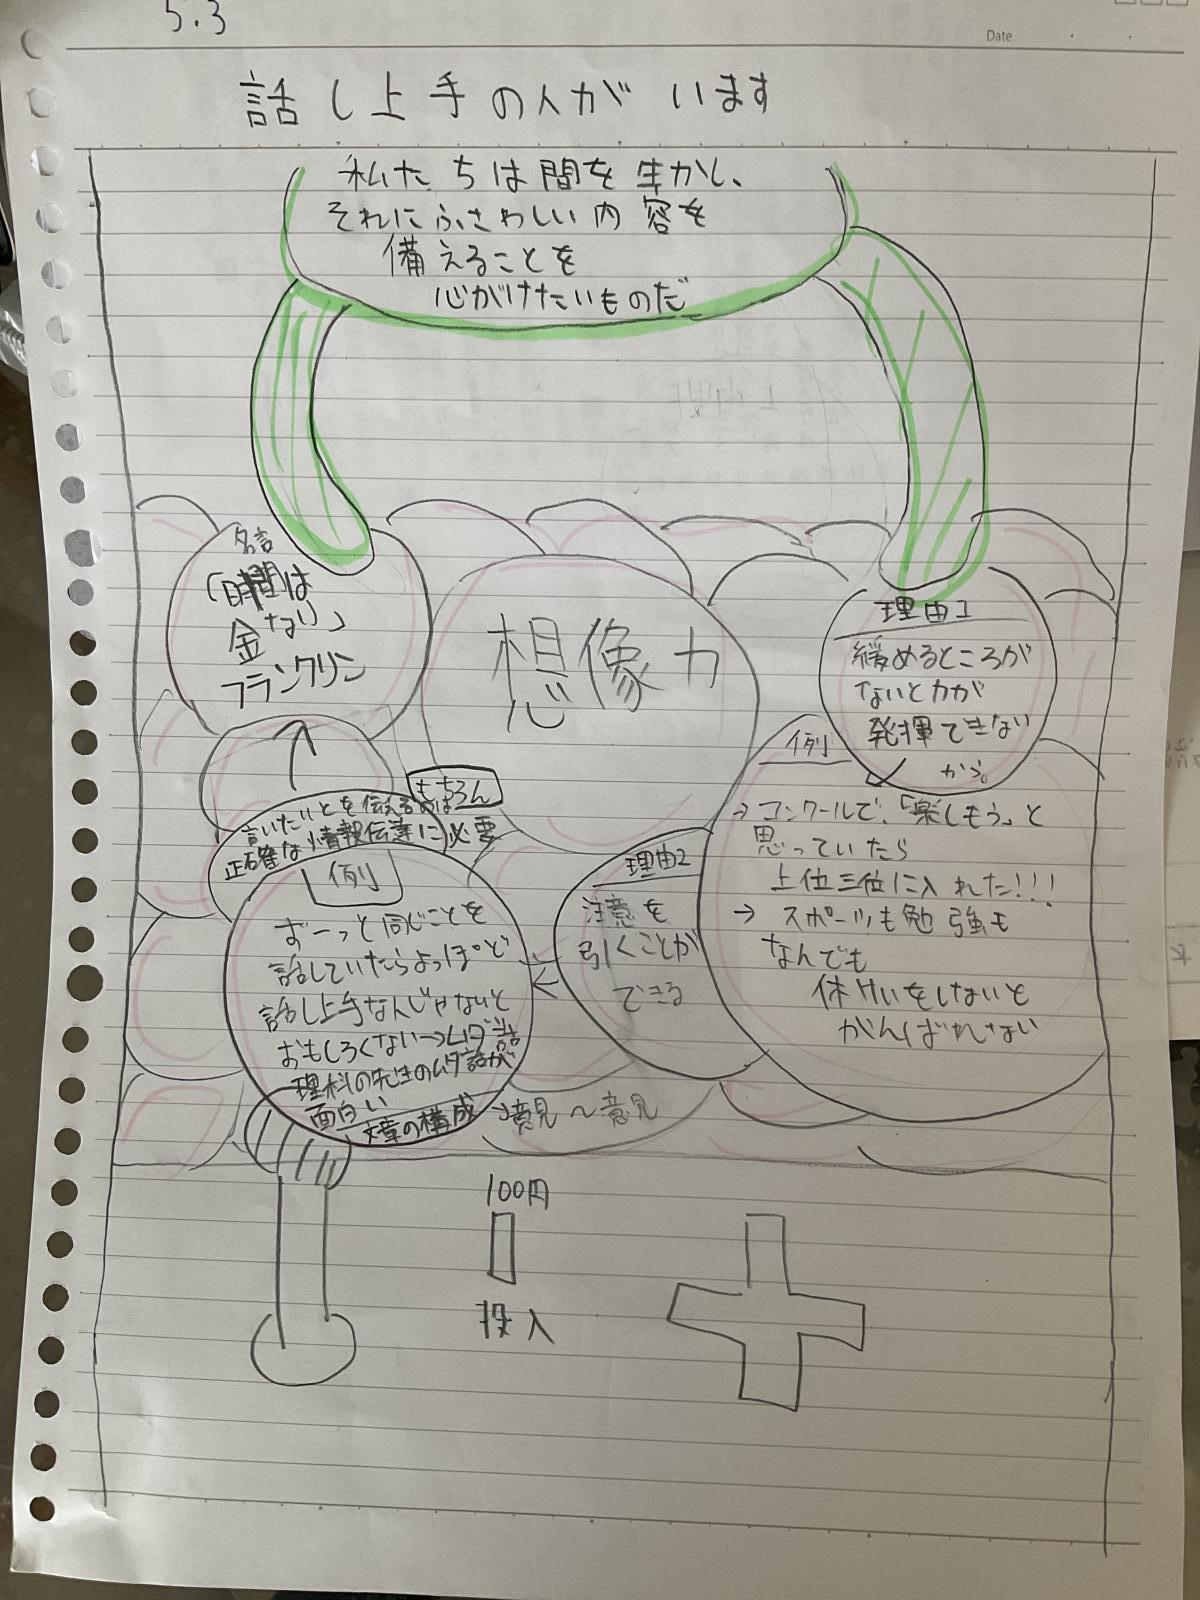 5.3
Date
話し上手の人がいます
私たちは間を生かし、
それにふさわしい内容を
備えることを
心がけたいものだ
名言
「時間は
金なり」
フランクリン
想像力
理由1
緩めるところが
ないと力が
発揮できない
から。
例
→コンクールで、「楽しもう」と
思っていたら
上位三位に入れた!!!
→スポーツも勉強も
なんでも
休けいをしないと
がんばれない
もちろん
言いたいことを伝えるのは
正確な情報伝達に必要
例
ずーっと同じことを
話していたらよっぽど
話し上手なんじゃないと
おもしろくない→ムダ話
理科の先生のムダ話が
面白い
文章の構成→意見〜意見
理由2
注意を
引くことが
できる
100円
投入